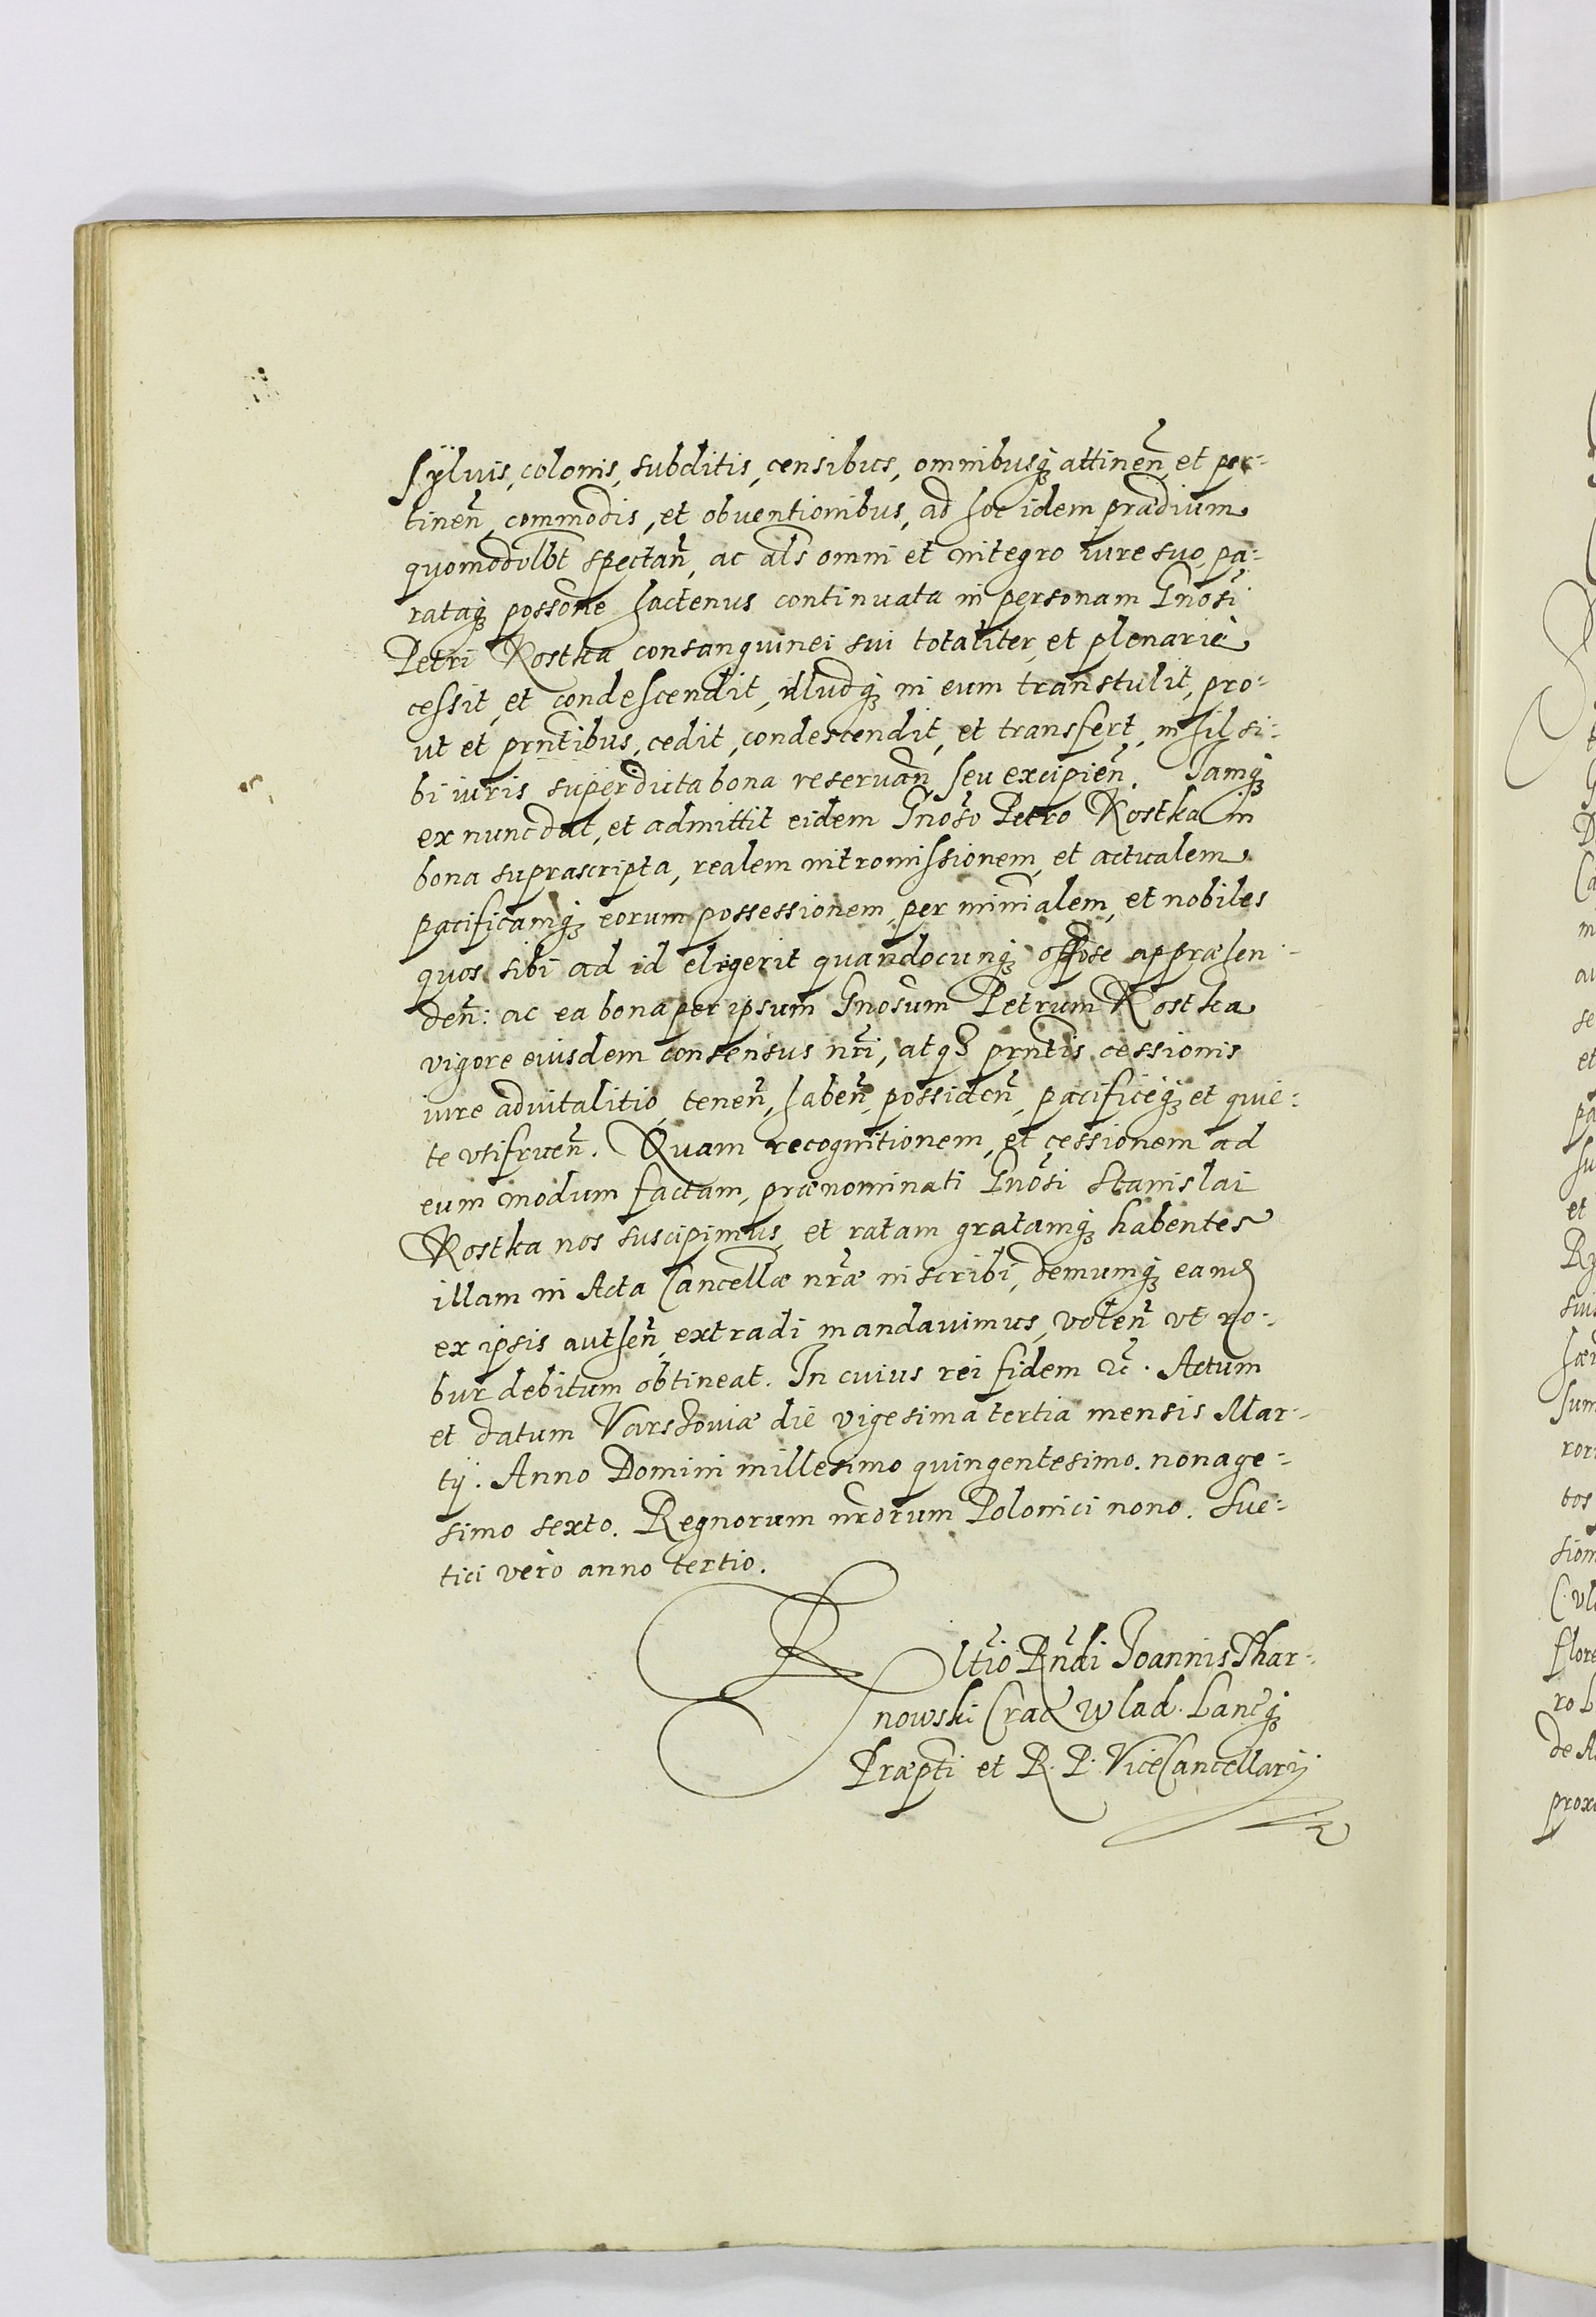 sÿluis, colonis, subditis, censibus, omnibusq́ꝫ attineñ, et per-
tineñ, commodis, et obuentionibus, ad hoc idem prædium
quomodolb̃t spectañ, ac al̃s omni et integro iure suo, pa-
rataq́ꝫ possõne hactenus continuata in personam Gñosi
Petri Kostka consanguinei sui totaliter, et plenarie
cessit, et condescendit, illudq́ꝫ in eum transtulit, pro-
ut et prñtibus, cedit, condescendit, et transfert, nihil si-
bi iuris super dicta bona reseruañ, seu excipieñ. Iamq́ꝫ
ex nunc dat, et admittit eidem Gñoso Petro Kostka in
bona suprascripta, realem intromissionem, et actualem
pacificamq́ꝫ eorum possessionem, per min̄ialem, et nobiles
quos sibi ad id elegerit quandocunq́ꝫ offõse appræhen-
deñ: ac ea bona per ipsum Gnosũm Petrum Kostka
vigore eiusdem consensus nr̃i, atqꝫ prñtis cessionis
iure aduitalitio, teneñ, habeñ, possideñ, pacificeq́ꝫ et quie-
te vtifrueñ. Quam recognitionem, et cessionem ad
eum modum factam, prænominati Gñosi Stanislai
Kostka nos suscipimus, et ratam gratamq́ꝫ habentes
illam in Acta Cancell̃æ nr̃æ inscribi, demumq́ꝫ eand
ex ipsis autheñ, extradi mandauimus, voleñ vt ro-
bur debitum obtineat. In cuius rei fidem &c̃. Actum
et datum Varshouiæ die vigesima tertia mensis Mar-
tÿ. Anno Domini millesimo quingentesimo. nonage-
simo sexto. Regnorum nr̃orum Polonici nono. Sue-
tici vero anno tertio.
Rltĩo Rñdi Joannis Thar-
nowski Crac Wlad. Lancq́ꝫ
Præpti et R. P. ViceCancellarÿ